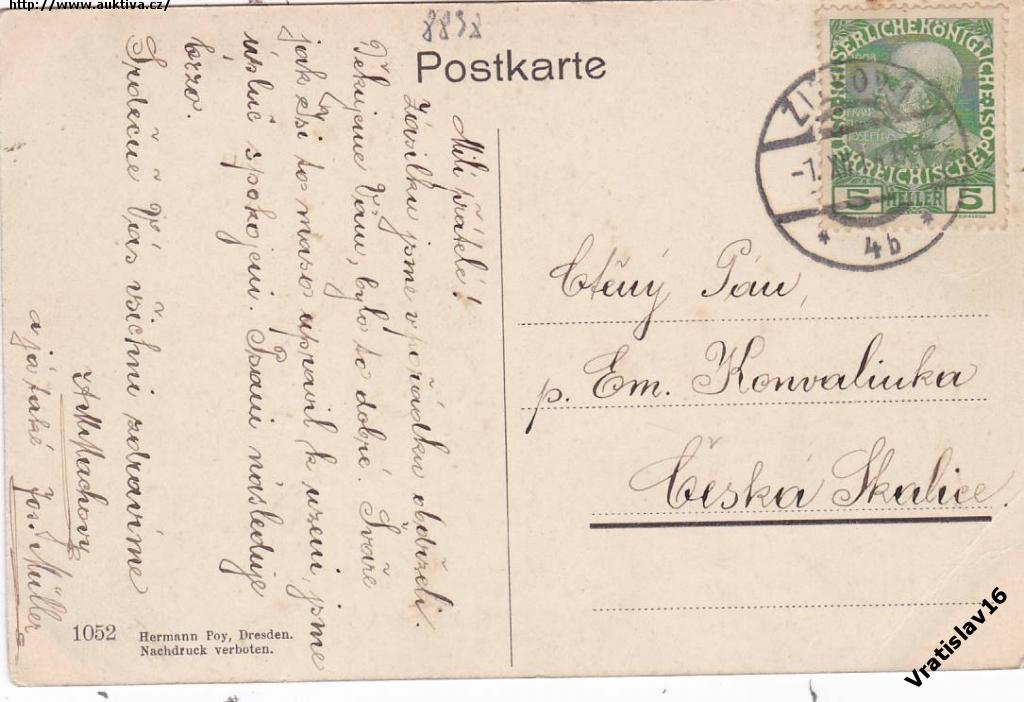 http://www.auktiva.cz/
8898
Postkarte
Milí přátelé!
Zásilku jsme v pořádku obdrželi.
Děkujeme Vám, bylo to dobré. Švaře
jak jsi to maso upravil k uzení, jsme
úplně spokojeni. Psaní následuje
brzo.
Srdečně Vás všichni zdravíme
Machovy
a já také Jos. Müller
1052
Hermann Poy, Dresden.
Nachdruck verboten.
KAISERLICHE KÖNIGLICHE
ÖSTERREICHISCHE POST
5 HELLER 5
4b
Ctěný Pán,
p. Em. Konvalinka
Česká Skalice.
Vratislav16